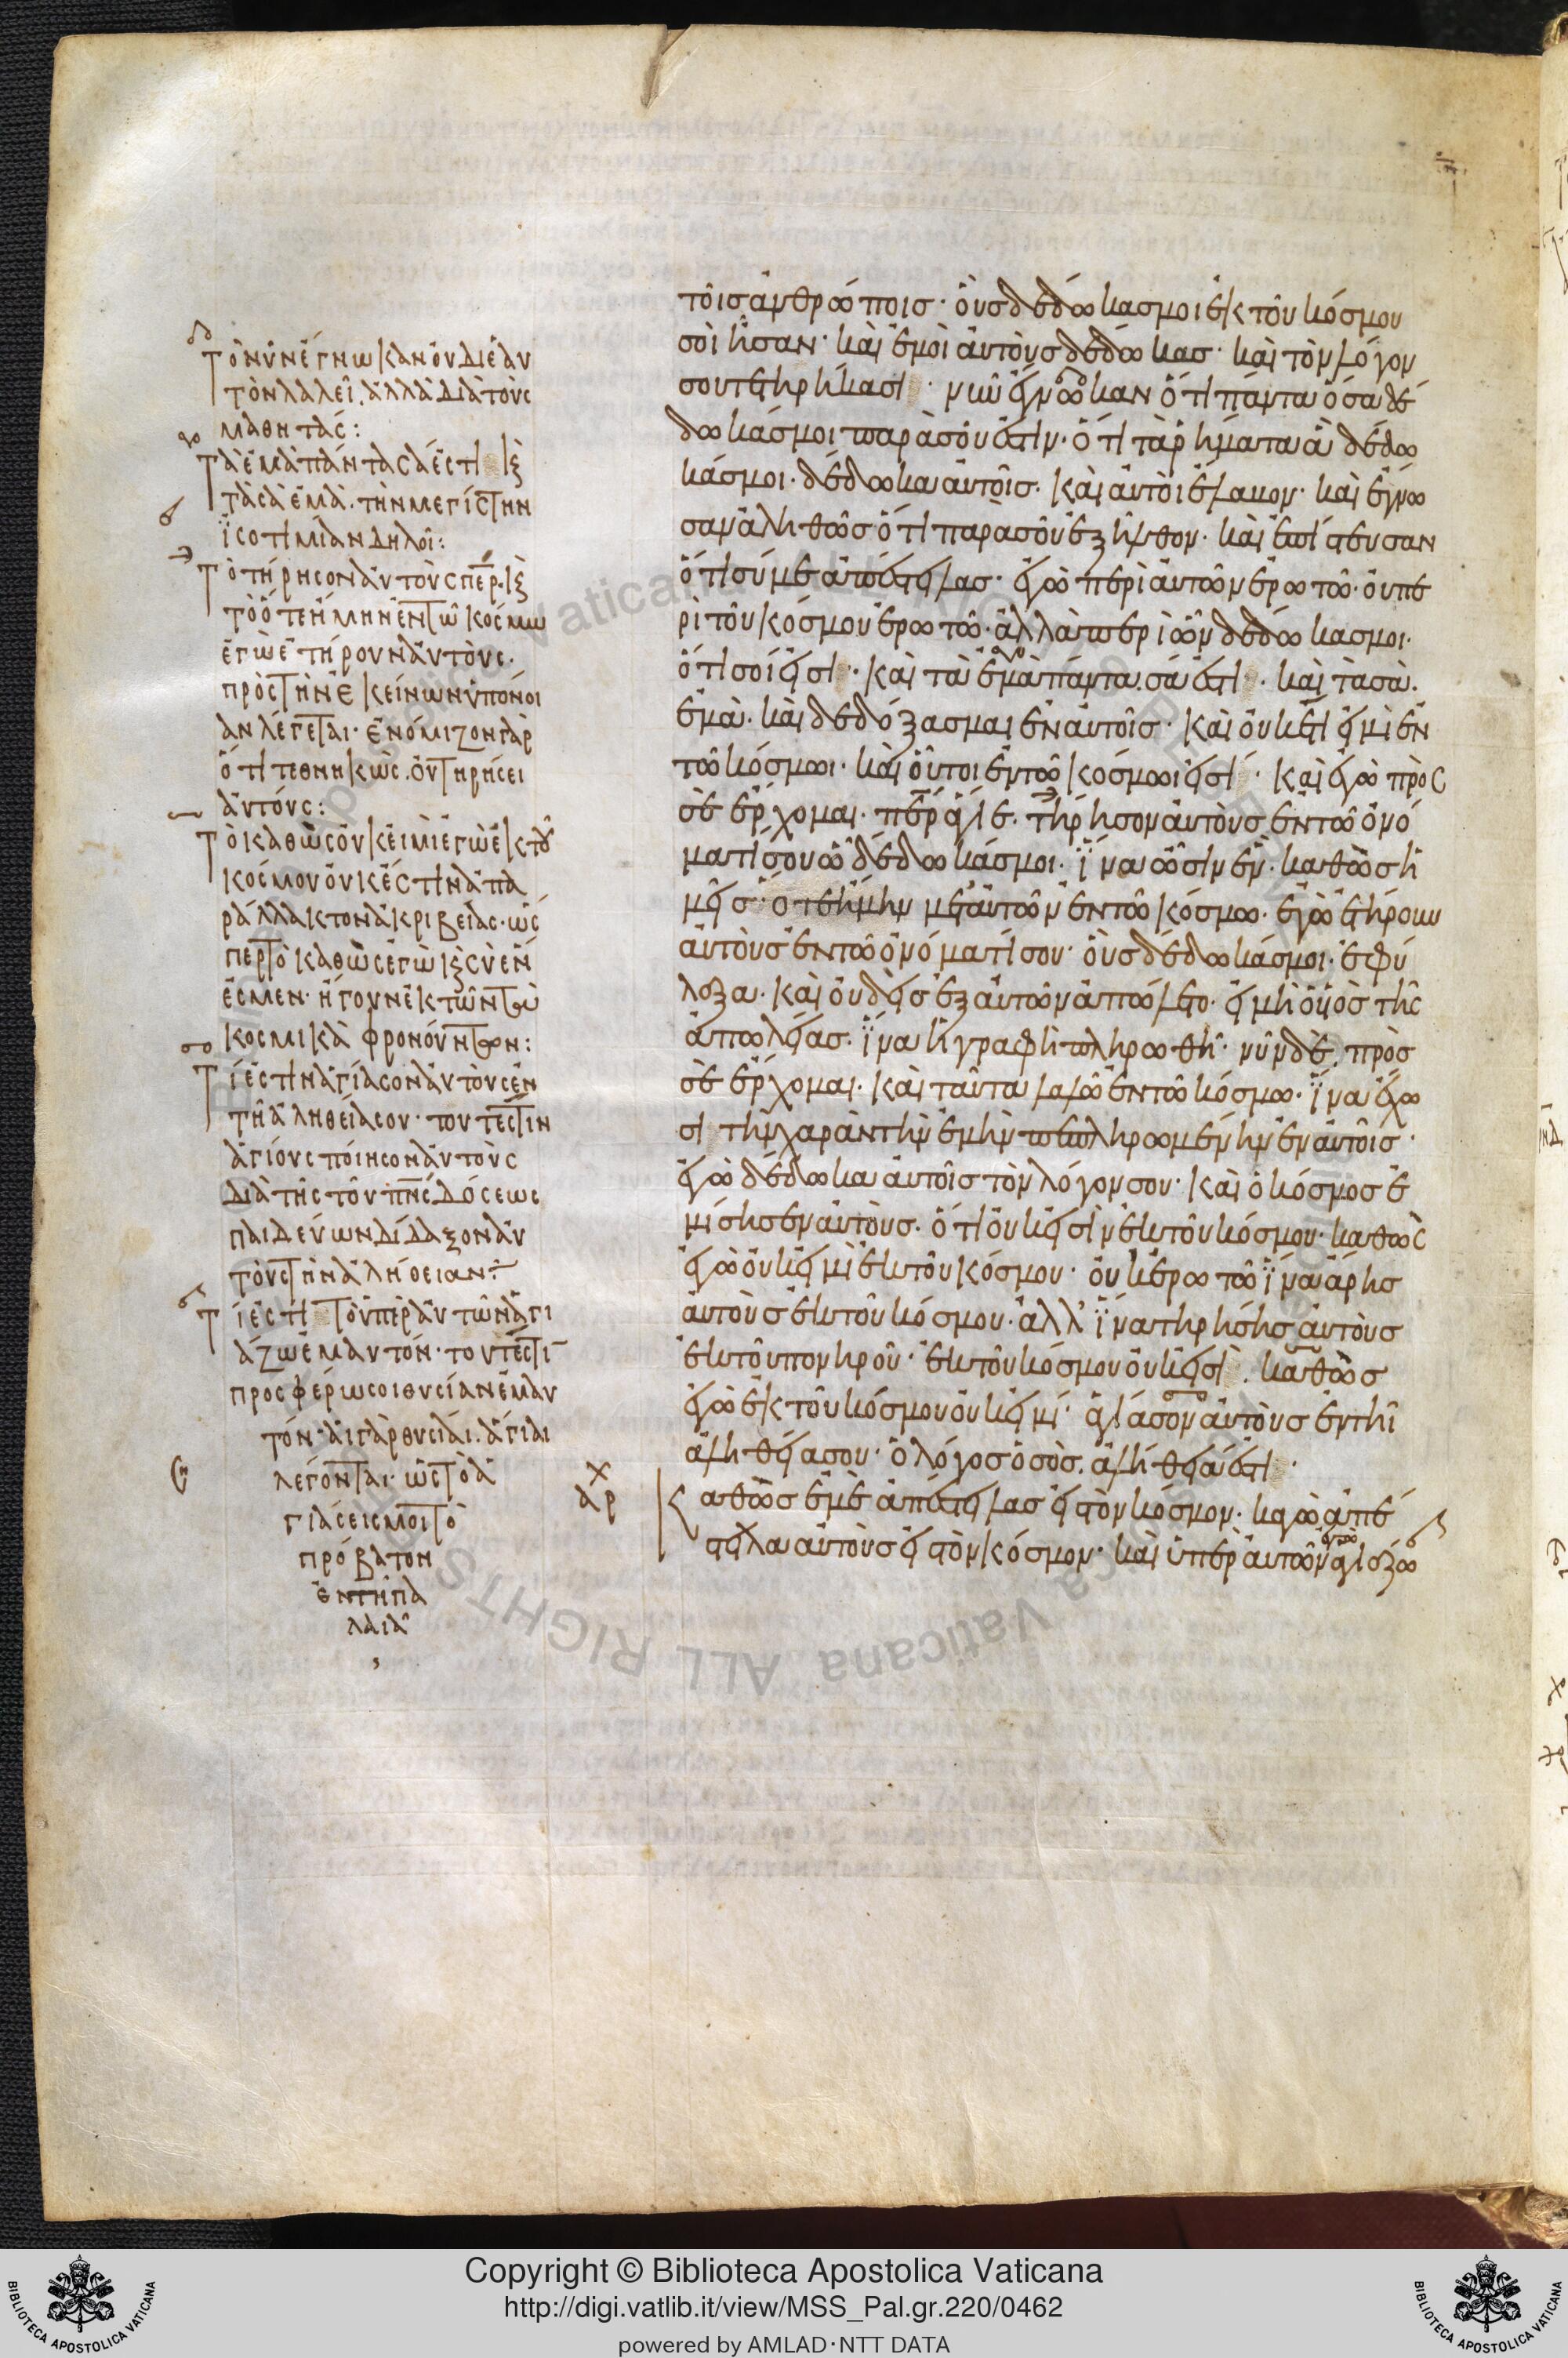 τοῖς ἀνθρώποις· οὓς δέδωκας μοι ἐκ τοῦ κόσμου
σοὶ ἦσαν· καὶ ἐμοὶ αὐτοὺς δέδωκας· καὶ τὸν λόγον
σου τετηρήκασι· νῦν ἔγνωκαν ὅτι πάντα ὅσα δέ
δωκάς μοι παρὰ σοῦ ἐστιν· ὅτι τὰ ῥήματα ἃ δέδω
κάς μοι· δέδωκα αὐτοῖς· καὶ αὐτοὶ ἔλαβον· καὶ ἔγνω
σαν ἀληθῶς ὅτι παρὰ σοῦ ἐξῆλθον· καὶ ἐπίστευσαν
ὅτι σύ με ἀπέστειλας· ἐγὼ περὶ αὐτῶν ἐρωτῶ· οὐ πε
ρὶ τοῦ κόσμου ἐρωτῶ· ἀλλὰ περὶ ὧν δέδωκας μοι·
ὅτι σοί εἰσι· καὶ τὰ ἐμὰ πάντα σά ἐστι· καὶ τὰ σὰ
ἐμὰ· καὶ δεδόξασμαι ἐν αὐτοῖς· καὶ οὐκέτι εἰμὶ ἐν
τῶ κόσμωι· καὶ οὗτοι ἐν τῶ κόσμωι εἰσί· καὶ ἐγὼ πρὸς
σὲ ἔρχομαι· περ ἅγιε· τήρησον αὐτοὺς ἐν τῶ ὀνό
ματί σου ᾧ δέδωκάς μοι· ἵνα ὦσιν ἓν· καθὼς ἡ
μεῖς· ὅτε ἤμην μετ' αὐτῶν ἐν τῶ κόσμω· ἐγὼ ἐτήρουν
αὐτοὺς ἐν τῶ ὀνόματί σου· οὓς δέδωκάς μοι· ἐφύ
λαξα· καὶ οὐδεὶς ἐξ αὐτῶν ἀπώλετο· εἰ μὴ ὁ υἱὸς τῆς
ἀπωλείας· ἵνα ἡ γραφὴ πληρωθῆ· νῦν δὲ πρὸς
σὲ ἔρχομαι· καὶ ταῦτα λαλῶ ἐν τῶ κόσμω· ἵνα ἔχω
σι τὴν χαρὰν τὴν ἐμὴν πεπληρωμένην ἐν αὐτοῖς·
ἐγὼ δέδωκα αὐτοῖς τὸν λόγον σου· καὶ ὁ κόσμος ἐ
μίσησεν αὐτοὺς· ὅτι οὐκ εἰσὶν ἐκ τοῦ κόσμου· καθὼς
ἐγὼ οὐκ εἰμὶ ἐκ τοῦ κόσμου· οὐκ ἐρωτῶ ἵνα ἄρης
αὐτοὺς ἐκ τοῦ κόσμου· ἀλλ' ἵνα τηρήσης αὐτοὺς
ἐκ τοῦ πονηροῦ· ἐκ τοῦ κόσμου οὐκ εἰσὶ· καθὼς
ἐγὼ ἐκ τοῦ κόσμου οὐκ εἰμί· ἁγίασον αὐτοὺς ἐν τῆ
ἀληθεία σου· ὁ λόγος ὁ σὸς ἀλήθειά ἐστι·
Καθὼς ἐμὲ ἀπέστειλας εἰς τὸν κόσμον· καγὼ ἀπέ
στειλα αὐτοὺς εἰς τὸν κόσμον· καὶ ὑπὲρ αὐτῶν ἐγὼ ἁγιάζω
Τὸ νῦν ἔγνωκαν οὐ δι' ἑαυ
τὸν λαλεῖ. ἀλλὰ διὰ τοὺς
μαθητάς:
Τὰ ἐμὰ πάντα σά ἐστι κς
τὰ σὰ ἐμὰ. τὴν μεγίστην
ἰσοτιμίαν δηλοῖ:
Τὸ τήρησον αὐτοὺς περ. κς
τὸ ὅτε ἤμην ἐν τῶ κόσμω
ἐγὼ ἐτήρουν αὐτοὺς.
πρὸς τὴν ἐκείνων ὑπόνοι
αν λέγεται. ἐνόμιζον γὰρ
ὅτι τεθνηκὼς. οὐ τηρήσει
αὐτούς:
Τὸ καθὼς οὐκ εἰμὶ ἐγὼ ἐκ τοῦ
κόσμου οὐκ ἔστιν ἀπα
ράλλακτον ἀκριβείας. ὥς
περ τὸ καθὼς ἐγὼ κς σὺ ἕν
ἐσμεν. ἤγουν ἐκ τῶν τὰ
κοσμικὰ φρονούντων:
Τί ἐστιν ἁγίασον αὐτοὺς ἐν
τῆ ἀληθεία σου. τουτέστιν
ἁγίους ποίησον αὐτοὺς
διὰ τῆς τοῦ πνς δόσεως
παιδεύων δίδαξον αὐ
τοὺς τὴν ἀλήθειαν:
Τί ἐστι τὸ ὑπὲρ αὐτῶν ἁγι
άζω ἐμαυτόν. τουτέστι
προσφέρω σοι θυσίαν ἐμαυ
τόν. αἱ γὰρ θυσίαι. ἅγιαι
λέγονται. ὡς τὸ ἁ
γιάσεις μοι τὸ
πρόβατον
ἐν τῆ πα
λαιᾶ
αρχ